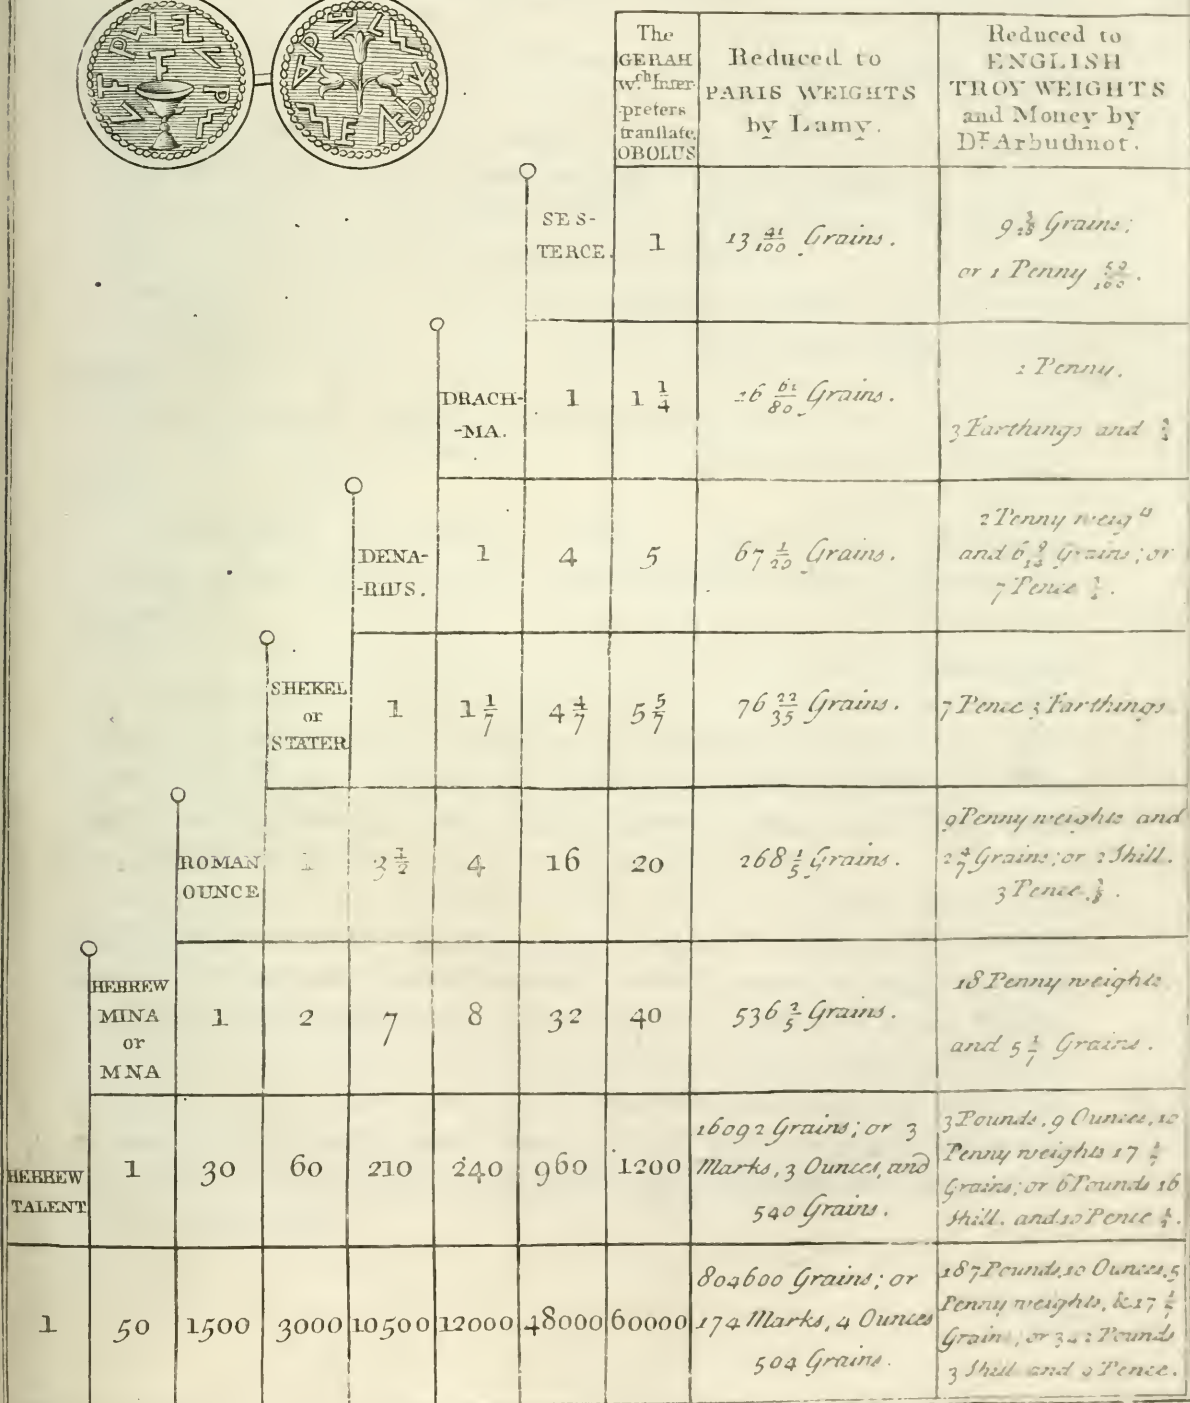 The
GERAH
w.ch Inter-
-preters
tranſlate
OBOLUS
Reduced to
PARIS WEIGHTS
by Lamy.
Reduced to
ENGLISH
TROY WEIGHTS
and Money by
Dr. Arbuthnot.
SES-
TERCE.
1
13 41/100 Grains.
9 Grains;
or 1 Penny
DRACH-
-MA.
1
1 1/4
16 61/80 Grains.
1 Penny.
3 Farthings and
DENA-
-RIUS.
1
4
5
67 1/20 Grains.
2 Penny weig
and 6 Grains; or
7 Pence
SHEKEL
or
STATER
1
1 1/7
4 4/7
5 5/7
76 22/35 Grains.
7 Pence 3 Farthings
ROMAN
OUNCE
1
3 1/2
4
16
20
268 1/5 Grains.
9 Penny weights and
2 4/7 Grains; or 2 Shill.
3 Pence.
HEBREW
MINA
or
MNA
1
2
7
8
32
40
536 2/5 Grains.
18 Penny weights
and 5 1/7 Grains.
HEBREW
TALENT
1
30
60
210
240
960
1200
16092 Grains; or 3
Marks, 3 Ounces, and
540 Grains.
3 Pounds, 9 Ounces, 10
Penny weights 17
Grains; or 6 Pounds 16
Shill. and 10 Pence
1
50
1500
3000
10500
12000
48000
60000
804600 Grains; or
174 Marks, 4 Ounces
504 Grains.
187 Pounds, 10 Ounces, 5
Penny weights, & 17
Grain, or 342 Pounds
3 Shill and 9 Pence.